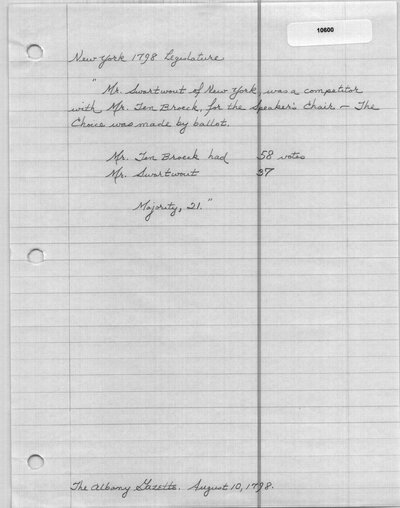 10600
New York 1798 Legislature
" Mr. Swartwout of New York, was a competitor
with Mr. Ten Broeck, for the Speaker's Chair – The
Choice was made by ballot.
Mr. Ten Broeck had 58 votes
Mr. Swartwout 37
Majority, 21."
The Albany Gazette. August 10, 1798.